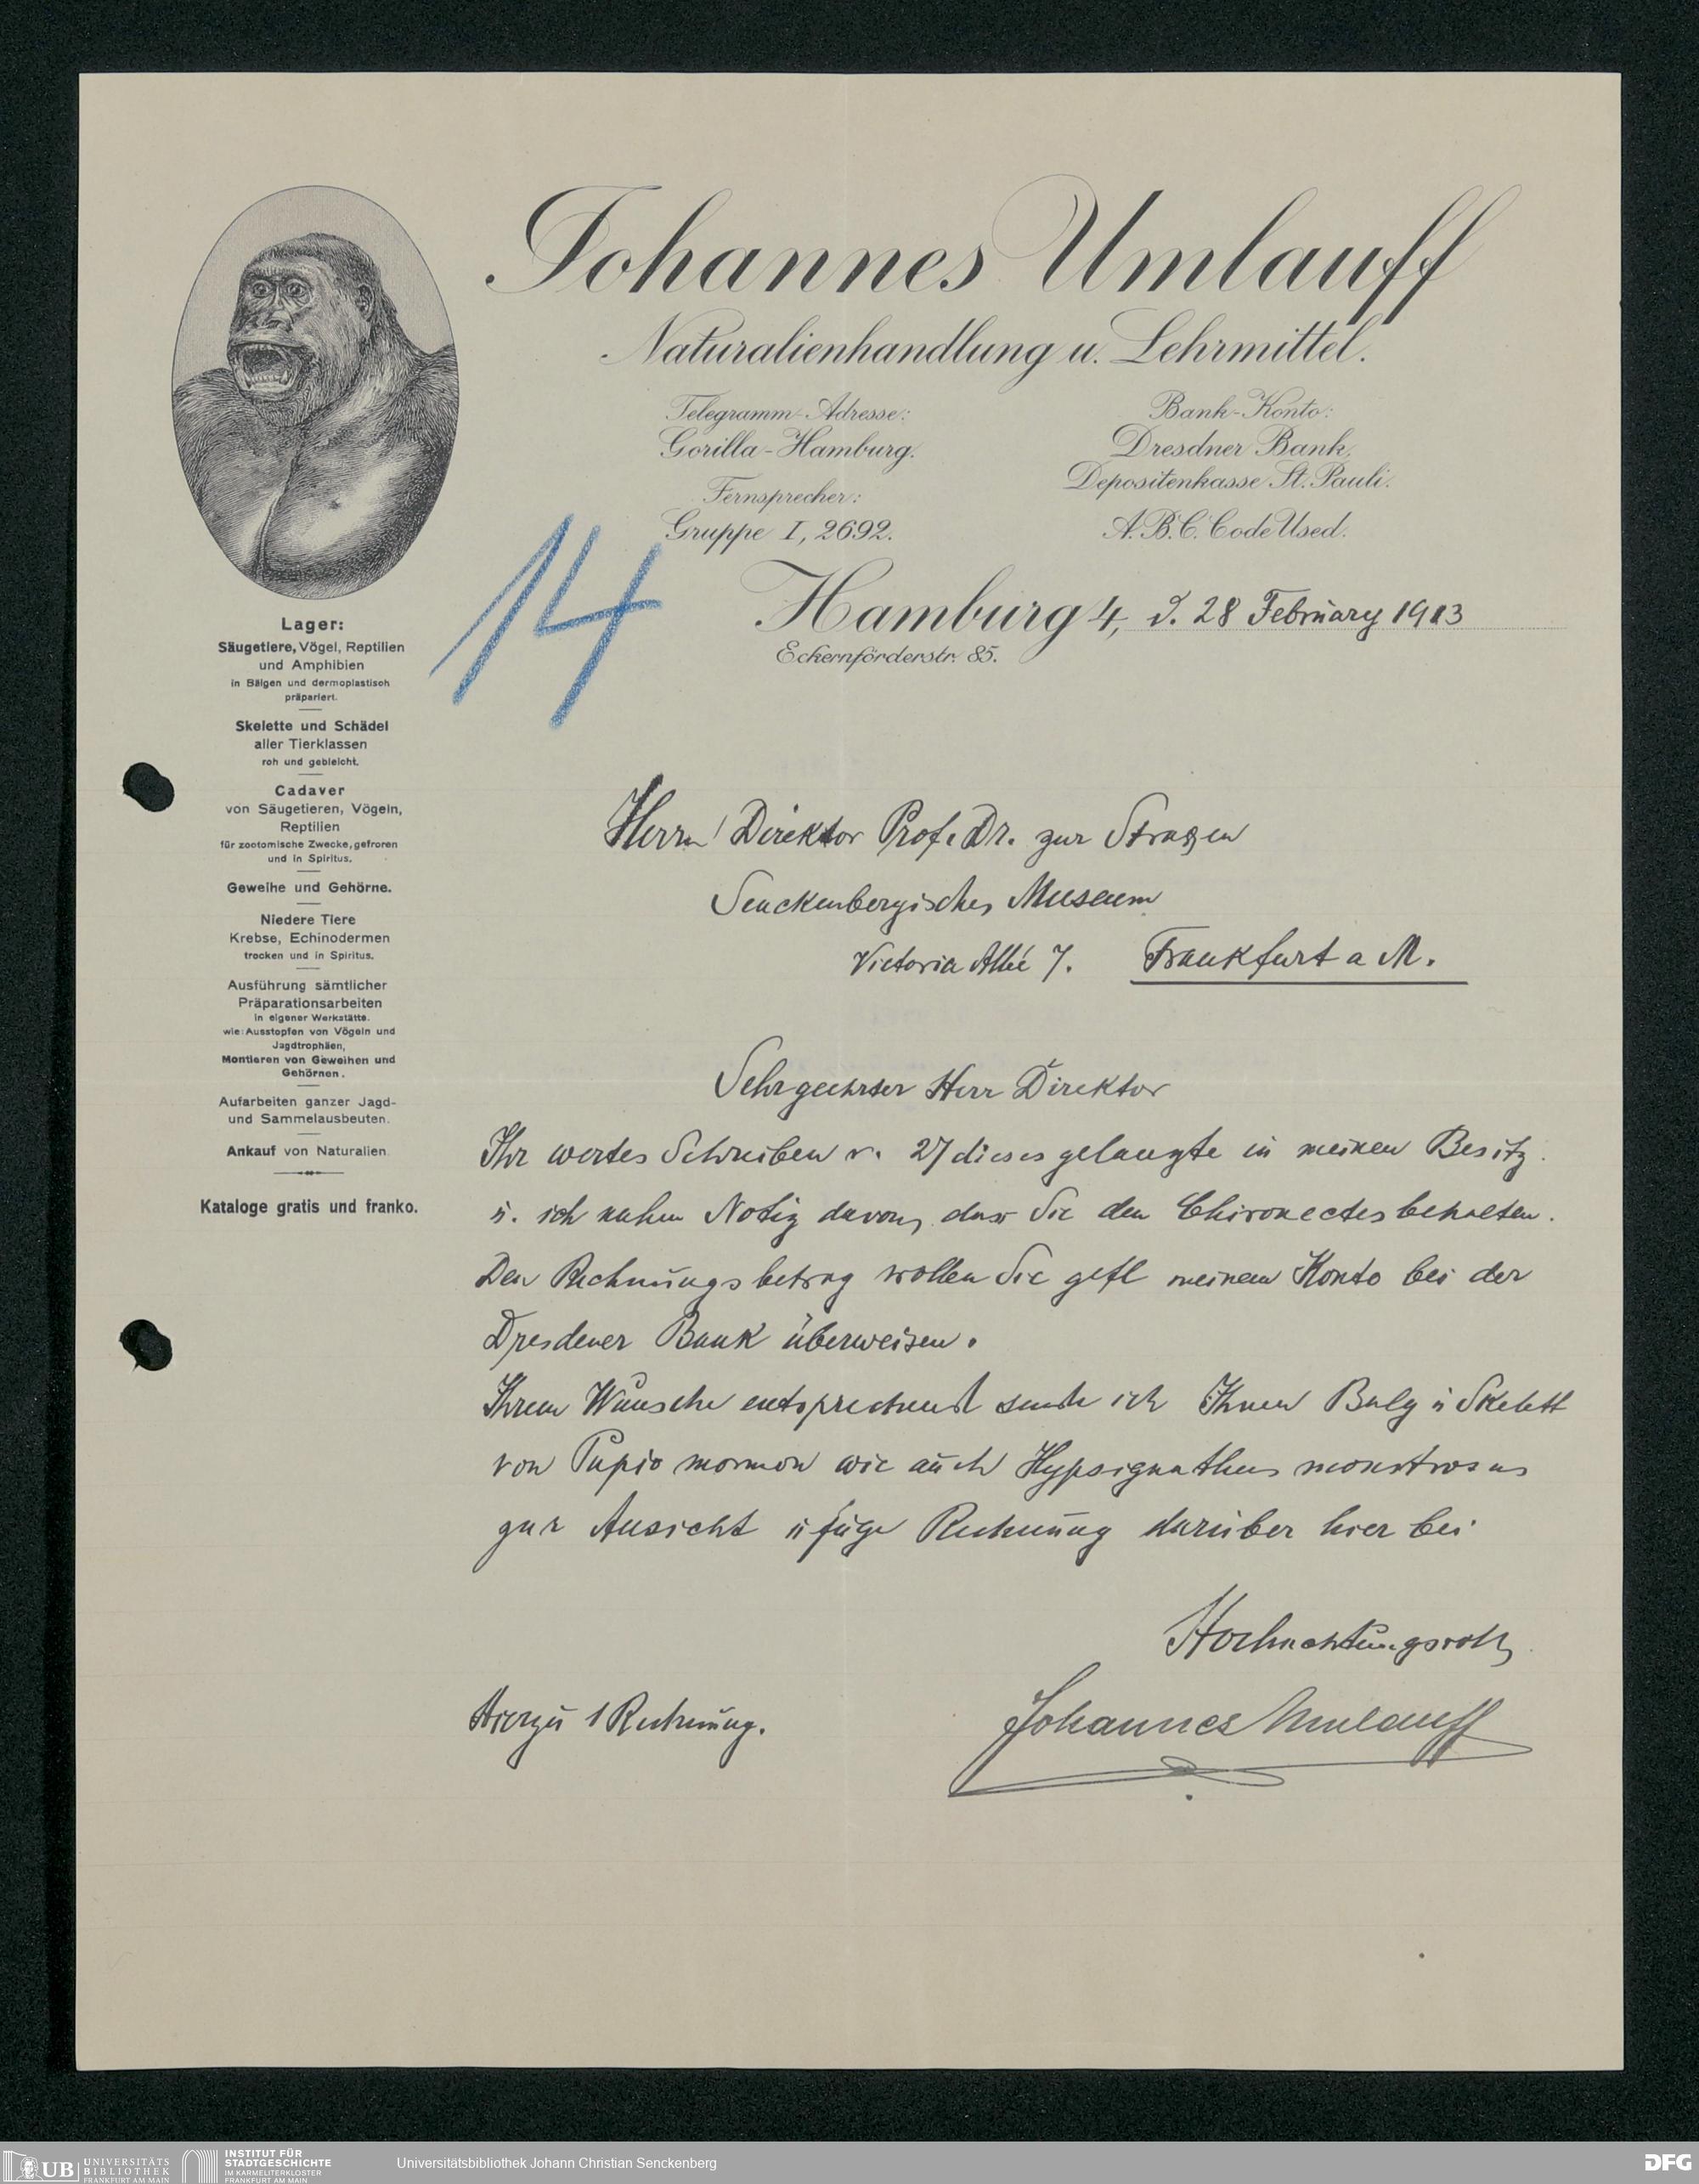 Johannes Umlauff
Naturalienhandlung u. Lehrmittel.
Telegramm-Adresse:
Gorilla-Hamburg.
Fernsprecher:
Gruppe I, 2692.
Bank-Konto:
Dresdner Bank,
Depositenkasse St. Pauli.
A.B.C. Code Used.
14
Hamburg 4, d. 28 Februáry 1913
Eckernförderstr. 85.
Lager:
Säugetiere, Vögel, Reptilien
und Amphibien
in Bälgen und dermoplastisch
präpariert.
Skelette und Schädel
aller Tierklassen
roh und gebleicht.
Cadaver
von Säugetieren, Vögeln,
Reptilien
für zootomische Zwecke, gefroren
und in Spiritus.
Geweihe und Gehörne.
Niedere Tiere
Krebse, Echinodermen
trocken und in Spiritus.
Ausführung sämtlicher
Präparationsarbeiten
in eigener Werkstätte.
wie: Ausstopfen von Vögeln und
Jagdtrophäen,
Montieren von Geweihen und
Gehörnen.
Aufarbeiten ganzer Jagd-
und Sammelausbeuten.
Ankauf von Naturalien.
Kataloge gratis und franko.
Herrn Direktor Prof. Dr. zur Strassen
Senckenbergisches Museum
Victoria Allée 7. Frankfurt a M.
Sehrgeehrter Herr Direktor
Ihr wertes Schreiben v. 27 dieses gelangte in meinen Besitz
u. ich nahm Notiz davon, dass Sie den Chironectes behalten.
Den Rechnungsbetrag wollen Sie gefl meinem Konto bei der
Dresdener Bank überweisen.
Ihrem Wunsche entsprechend sende ich Ihnen Balg u Skelett
von Papio mormon wie auch Hypsignathus monstrosus
zur Ansicht u füge Rechnung darüber hier bei
Hochachtungsvoll
Johannes Umlauff
Hierzu 1 Rechnung.
UB UNIVERSITÄTS
BIBLIOTHEK
FRANKFURT AM MAIN
INSTITUT FÜR
STADTGESCHICHTE
IM KARMELITERKLOSTER
FRANKFURT AM MAIN
Universitätsbibliothek Johann Christian Senckenberg
DFG